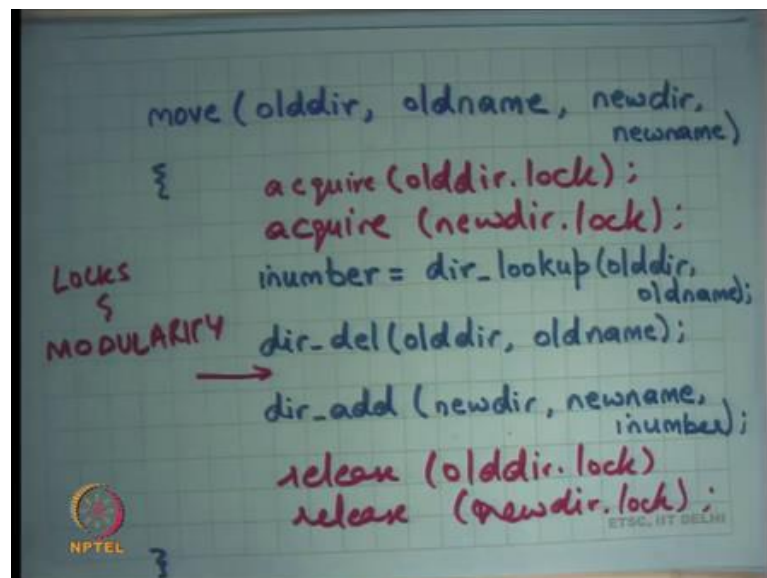 move (olddir, oldname, newdir,
newname)
{
acquire (olddir.lock);
acquire (newdir.lock);
LOCKS
&
MODULARITY
inumber = dir_lookup(olddir,
oldname);
dir_del(olddir, oldname);
dir_add (newdir, newname,
inumber);
release (olddir.lock)
release (newdir.lock);
}
NPTEL
ETSC, IIT DELHI